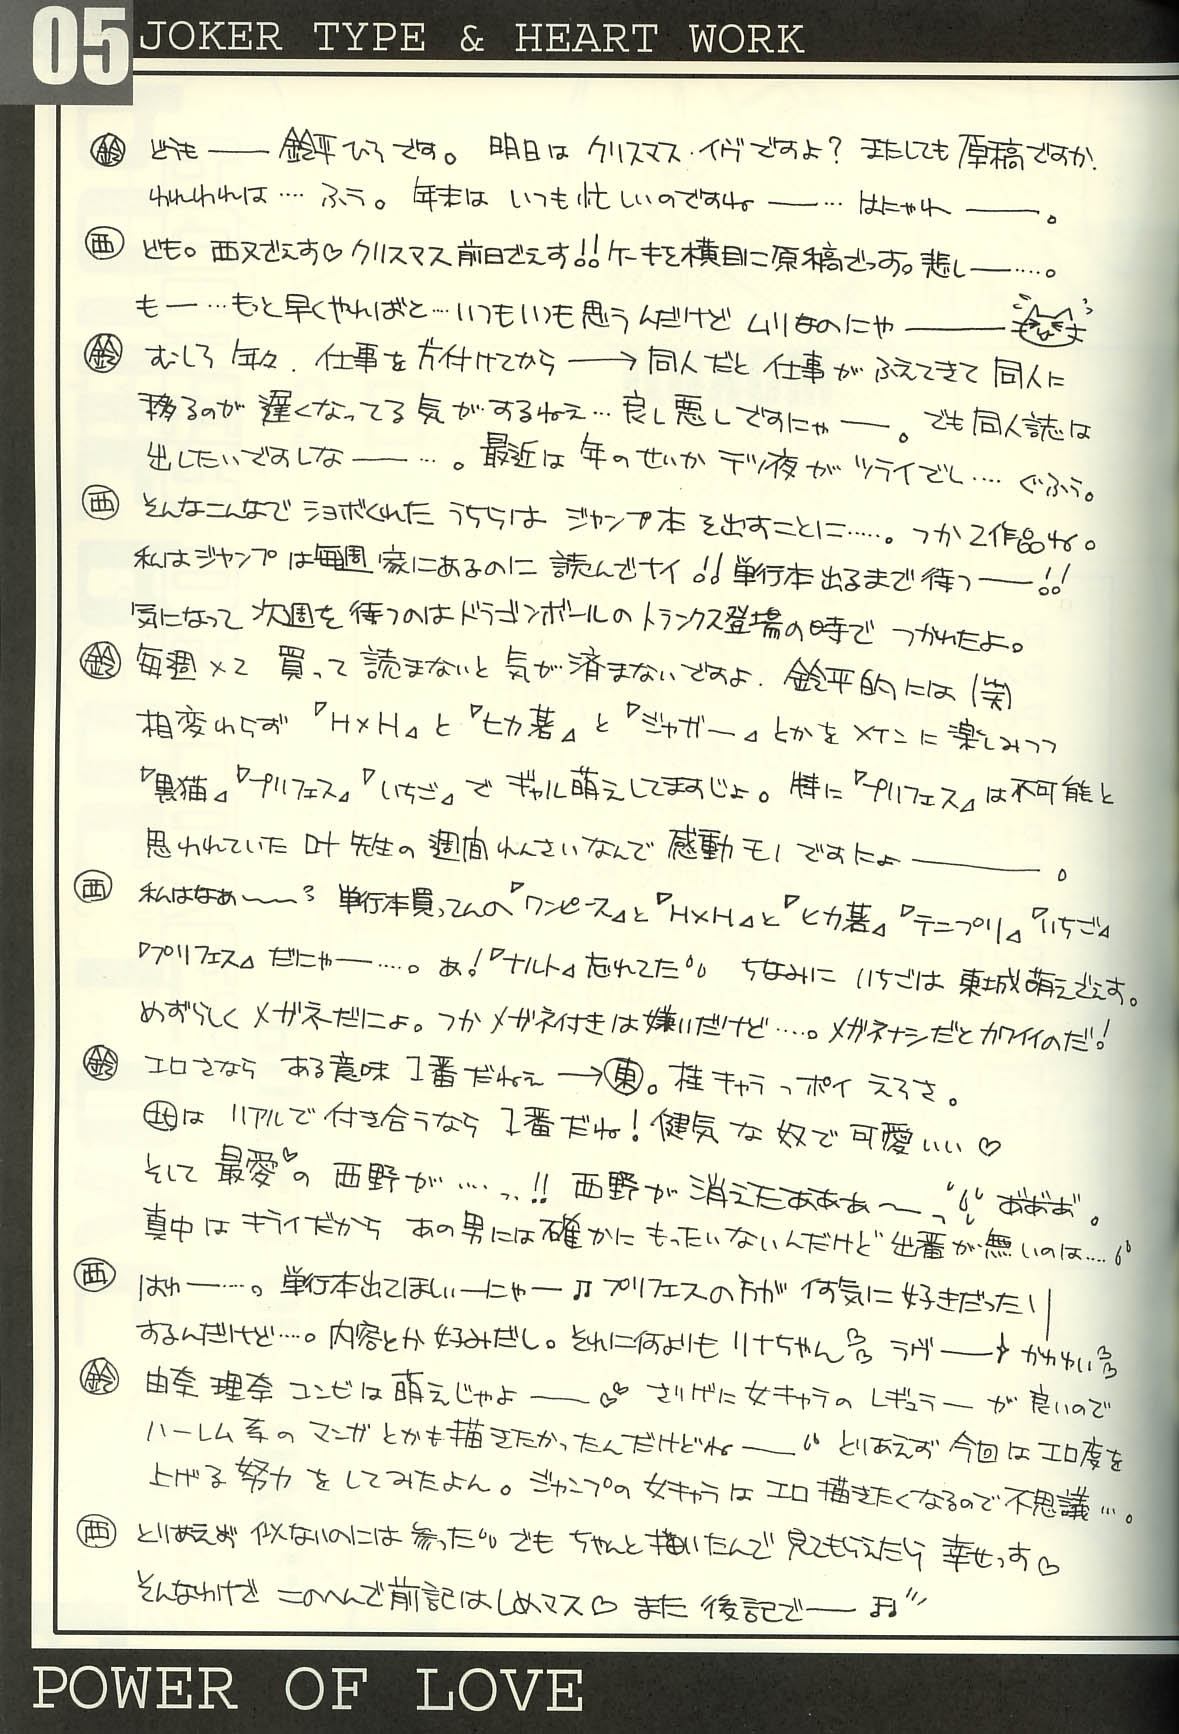 05 JOKER TYPE & HEART WORK
鈴 どうも——鈴平ひろです。 明日は クリスマス・イヴですよ? またしても原稿ですか.
われわれは…. ふう。 年末は いつも忙しいのですね——… はにゃれ——。
西 ども。西又でぇす♡クリスマス前日でぇす!!ケーキを横目に原稿でっす。悲し——….。
もー…もっと早くやればと…いつもいつも思うんだけど ムリなのにゃ———
鈴 むしろ 年々. 仕事を方付けてから——→同人だと 仕事が ふえてきて 同人に
移るのが 遅くなってる 気がするねえ…良し悪しですにゃ——。でも同人誌は
出したいですしな——…。最近は 年のせいか テツ夜が ツライでし…. ぐふぅ。
西 そんなこんなで ショボくれた うちらは ジャンプ本 を出すことに……。つか2作品ね。
私はジャンプは毎週 家にあるのに 読んでナイ!!単行本出るまで待つ——!!
気になって 次週を 待つのはドラゴンボールのトランクス登場の時で つかれたよ。
鈴 毎週×2 買って 読まないと気が済まないですよ. 鈴平的には(笑)
相変わらず『H×H』と『ヒカ碁』と『ジャガー』とかをメインに楽しみつつ
『黒猫』『プリフェス』『いちご』で ギャル萌えしてますじょ。特に『プリフェス』は不可能と
思われていた 叶先生の 週間れんさいなんで 感動モノですにょ———。
西 私はなぁ〜〜? 単行本買ってんの『ワンピース』と『H×H』と『ヒカ碁』『テニプリ』『いちご』
『プリフェス』だにゃー….。あ!『ナルト』忘れてた ちなみに いちごは 東城萌えでぇす。
めずらしくメガネだにょ。つかメガネ付きは嫌いだけど….。メガネナシだとカワイイのだ!
鈴 エロさなら ある意味 1番だねぇ→東。桂キャラっポイ えろさ。
北は リアルで付き合うなら 1番だね!健気な奴で可愛いい♡
そして 最愛♡の 西野が….っ!! 西野が消えたあああ〜っ あ゛あ゛あ゛。
真中は キライだから あの男には確かに もったいないんだけど出番が無いのは….
西 はゎ——….。単行本出てほしいーにゃー♫プリフェスの方が 何気に好きだったり
するんだけど….。内容とか 好みだし。それに何よりも リナちゃん ラヴ—— かわゆい
鈴 由奈 理奈 コンビは萌えじゃよ—— さりげに女キャラの レギュラーが 良いので
ハーレム系の マンガとかも描きたかったんだけどね—— とりあえず 今回は エロ度を
上げる努力 をしてみたよん。ジャンプの 女キャラは エロ 描きたくなるので不思議…。
西 とりあえず 似ないのには 参った でも ちゃんと描いたんで 見てもらえたら 幸せっす♡
そんなわけで このへんで前記はしめマス♡ また 後記で—— ♫
POWER OF LOVE